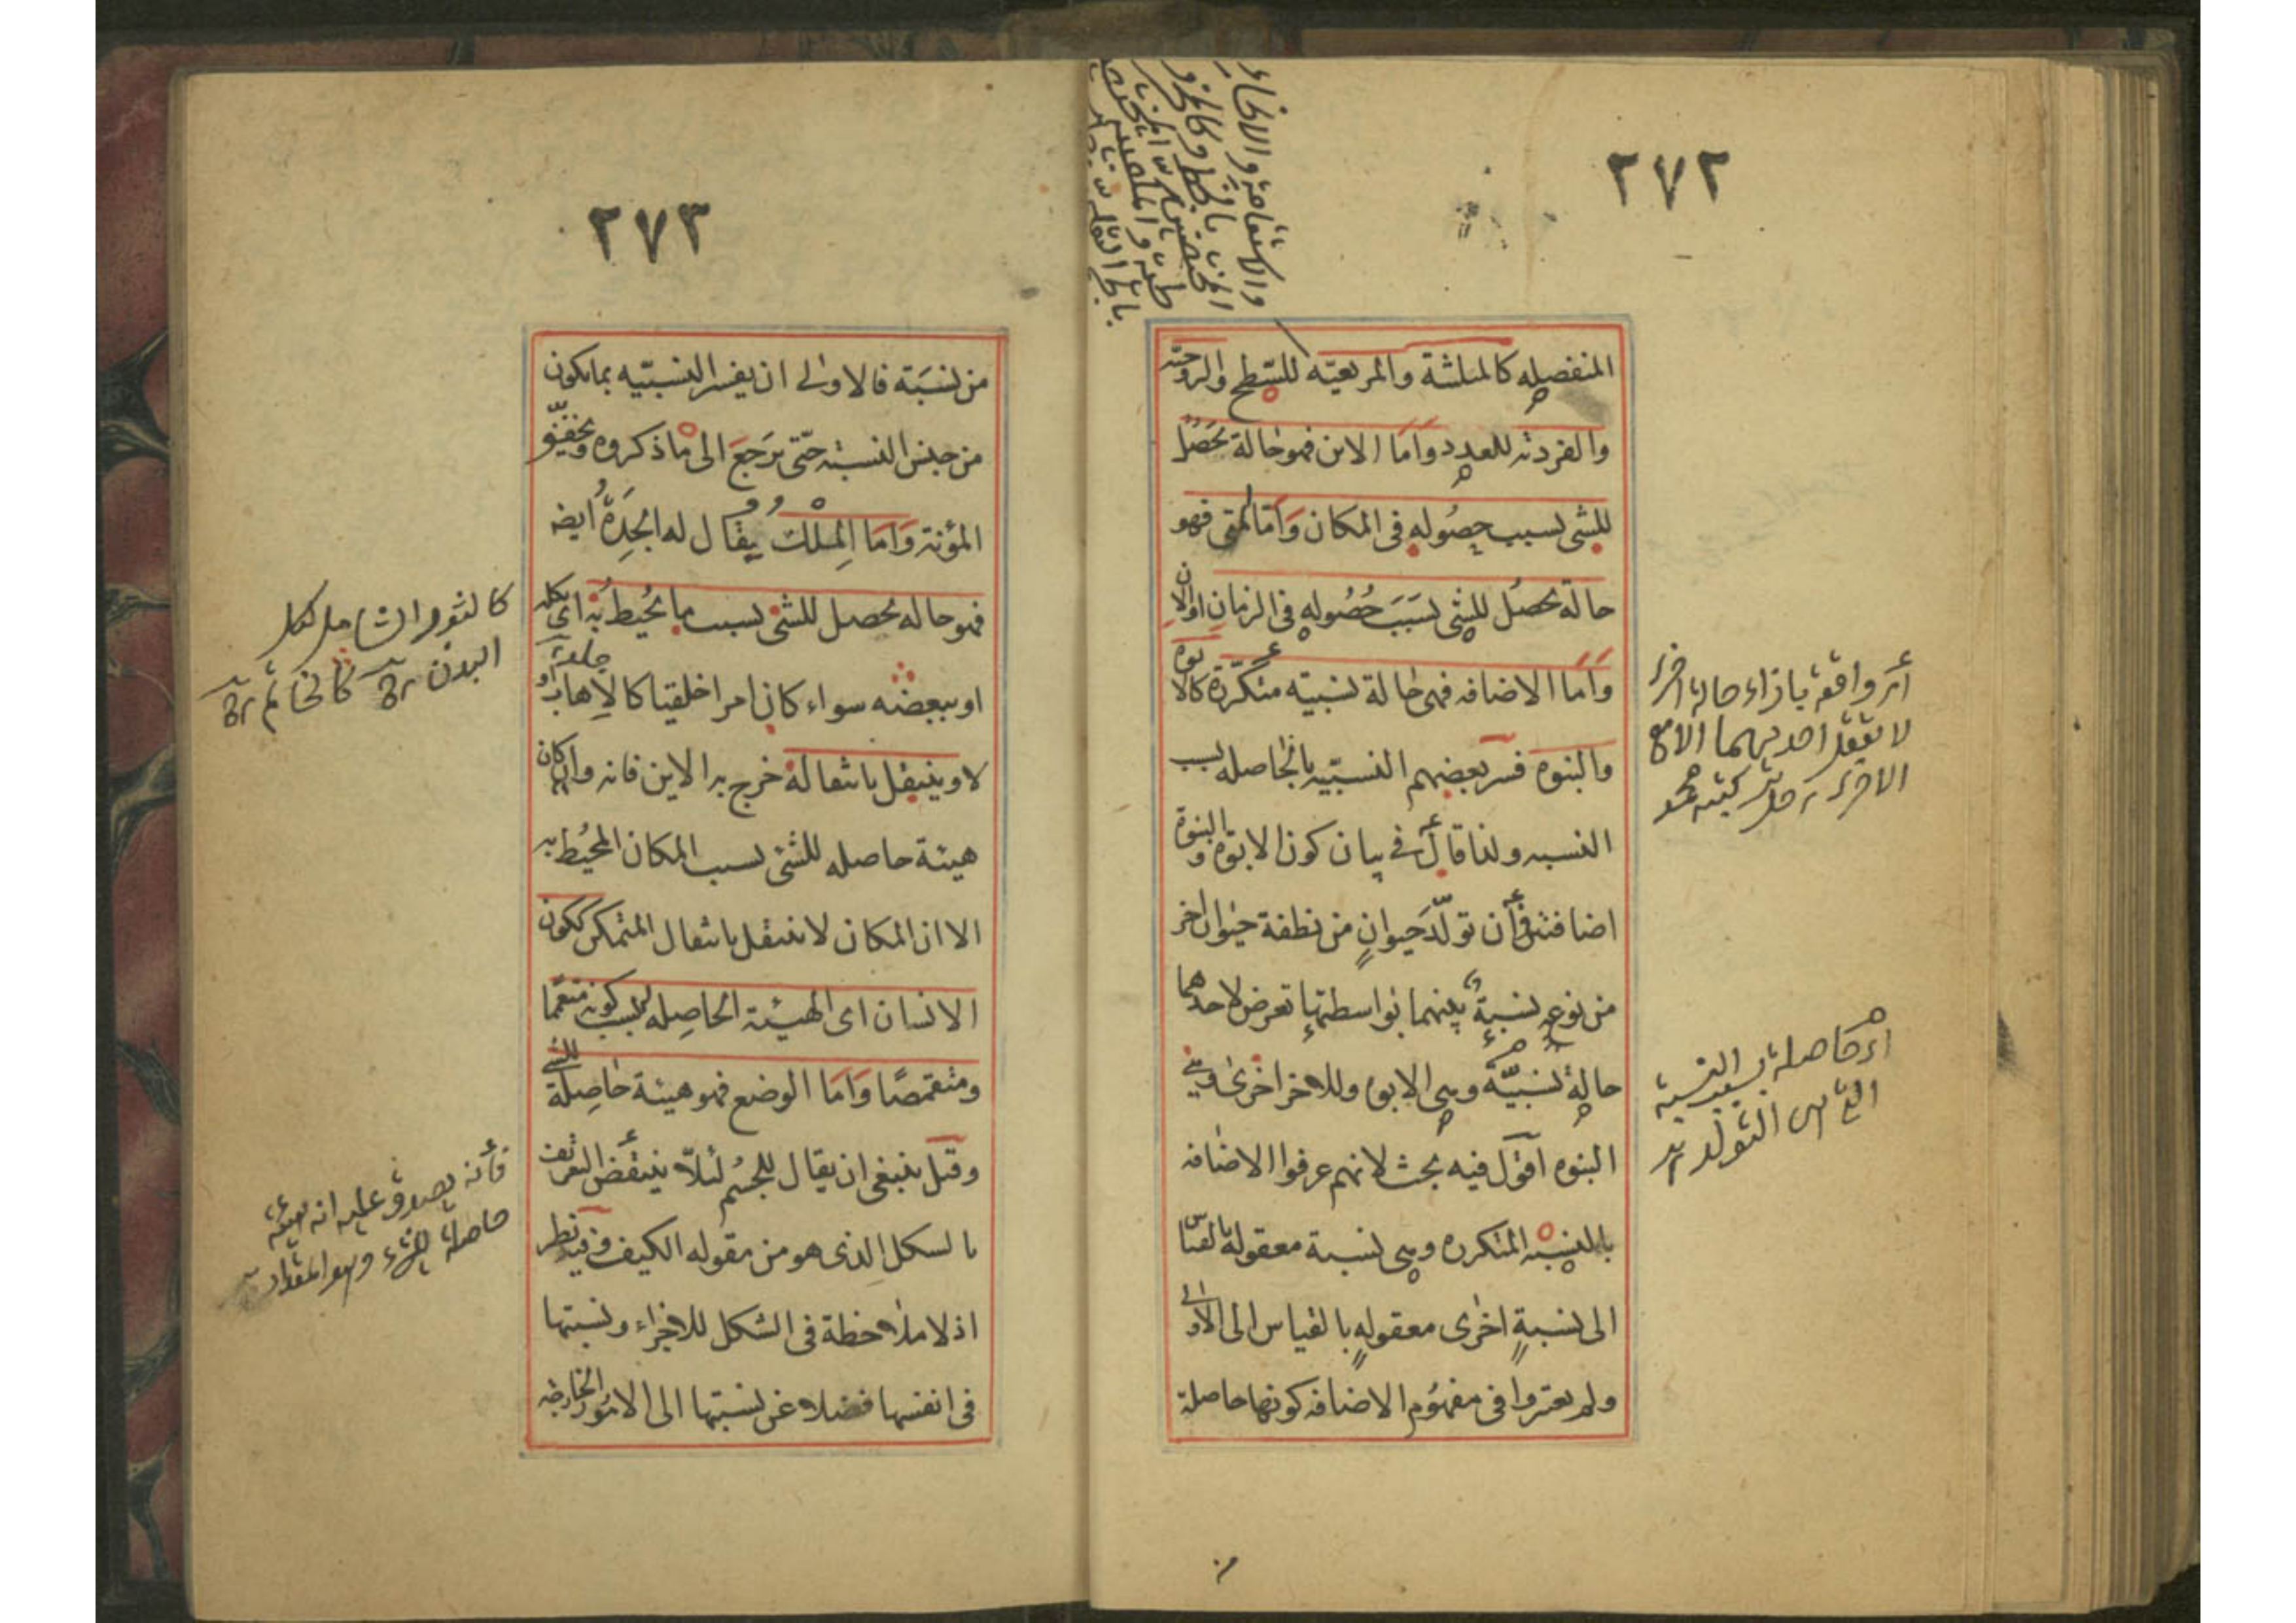 ٢٧٢
والاستقامة والانحناء
المنفصله كالمثلثية والمربعيّه للسّطح والزوجيّه
والفرديّه للعدد وَاَمّا الاين فهو حالة تحَصُل
للشئ بسبب حصُوله فى المكان وَاَمّا المتى فهو
حالة تحصُل للشئ بسَبَب حُصُولِهِ فى الزمانِ اوالانِ
وَاَمّا الاضافه فهى حالة نسبيّه متكرّرة كالابوه
والبنوه فسّر بعضهم النسبّيه بالحاصله بسبب
النسبه ولذا قال فى بيان كون الابوّه والبنوّة
اضافتين فأن تولّد حَيوانٍ من نطفة حيوانٍ اخر
من نوعه نسبةٌ بينهما بواسطتها تعرض لاحدهما
حالةٌ نسبيّةٌ وهى الابوه وللاخر اخرى وهى
البنوه اقول فيه بحث لانهم عرفوا الاضافه
بالنسبه المتكرره وهى نسبة معقولة بالقياس
الى نسبةٍ اخرى معقولهٍ بالقياس الى الاولى
ولم يعتبروا فى مفهُوم الاضافه كونها حاصلة
اى واقعة بازاء حالة اخرى
لا تعقل احديهما الا مع
الاخرى
اى حاصلة بسبب النسبة
التى هى التولد
٢٧٣
من نسَبَة فالاولى ان يفسر النسبّيه بمايكون
من جنس النسبة حتّى يَرجَعَ الى ماذكروه ويخفّف
المؤنة وَاَمّا المِلْكُ يُقال له الجِدَةُ ايضه
فهو حاله تحصل للشئ بسبب ما يُحيط به اى بكله
او ببعضه سواء كان امرا خلقيا كالاِهاب او
لا وينتقل بانتقاله خرج به الاين فانه وان كان
هيئة حاصله للشئ بسبب المكان المُحيُط به
الا ان المكان لا ينتقل بانتقال المتمكن ككون
الانسان اى الهيئة الحاصله بسبب كونه متعمّما
ومتقمّصًا وَاَمّا الوضع فهو هيئة حاصِلة للشئ
وقيل ينبغى ان يقال للجسُم لئلاّ ينتقض التعريف
بالشكل الذى هو من مقوله الكيف وفيه نظر
اذ لا ملاحظة فى الشكل للاجزاء ونسبتها
فى انفسها فضلا عن نسبتها الى الامُور الخارجة
كالثوب الشامل لكل
البدن كالخاتم
فأنه يصدق عليه انه هيئة
حاصلة للشئ وهو المقدار